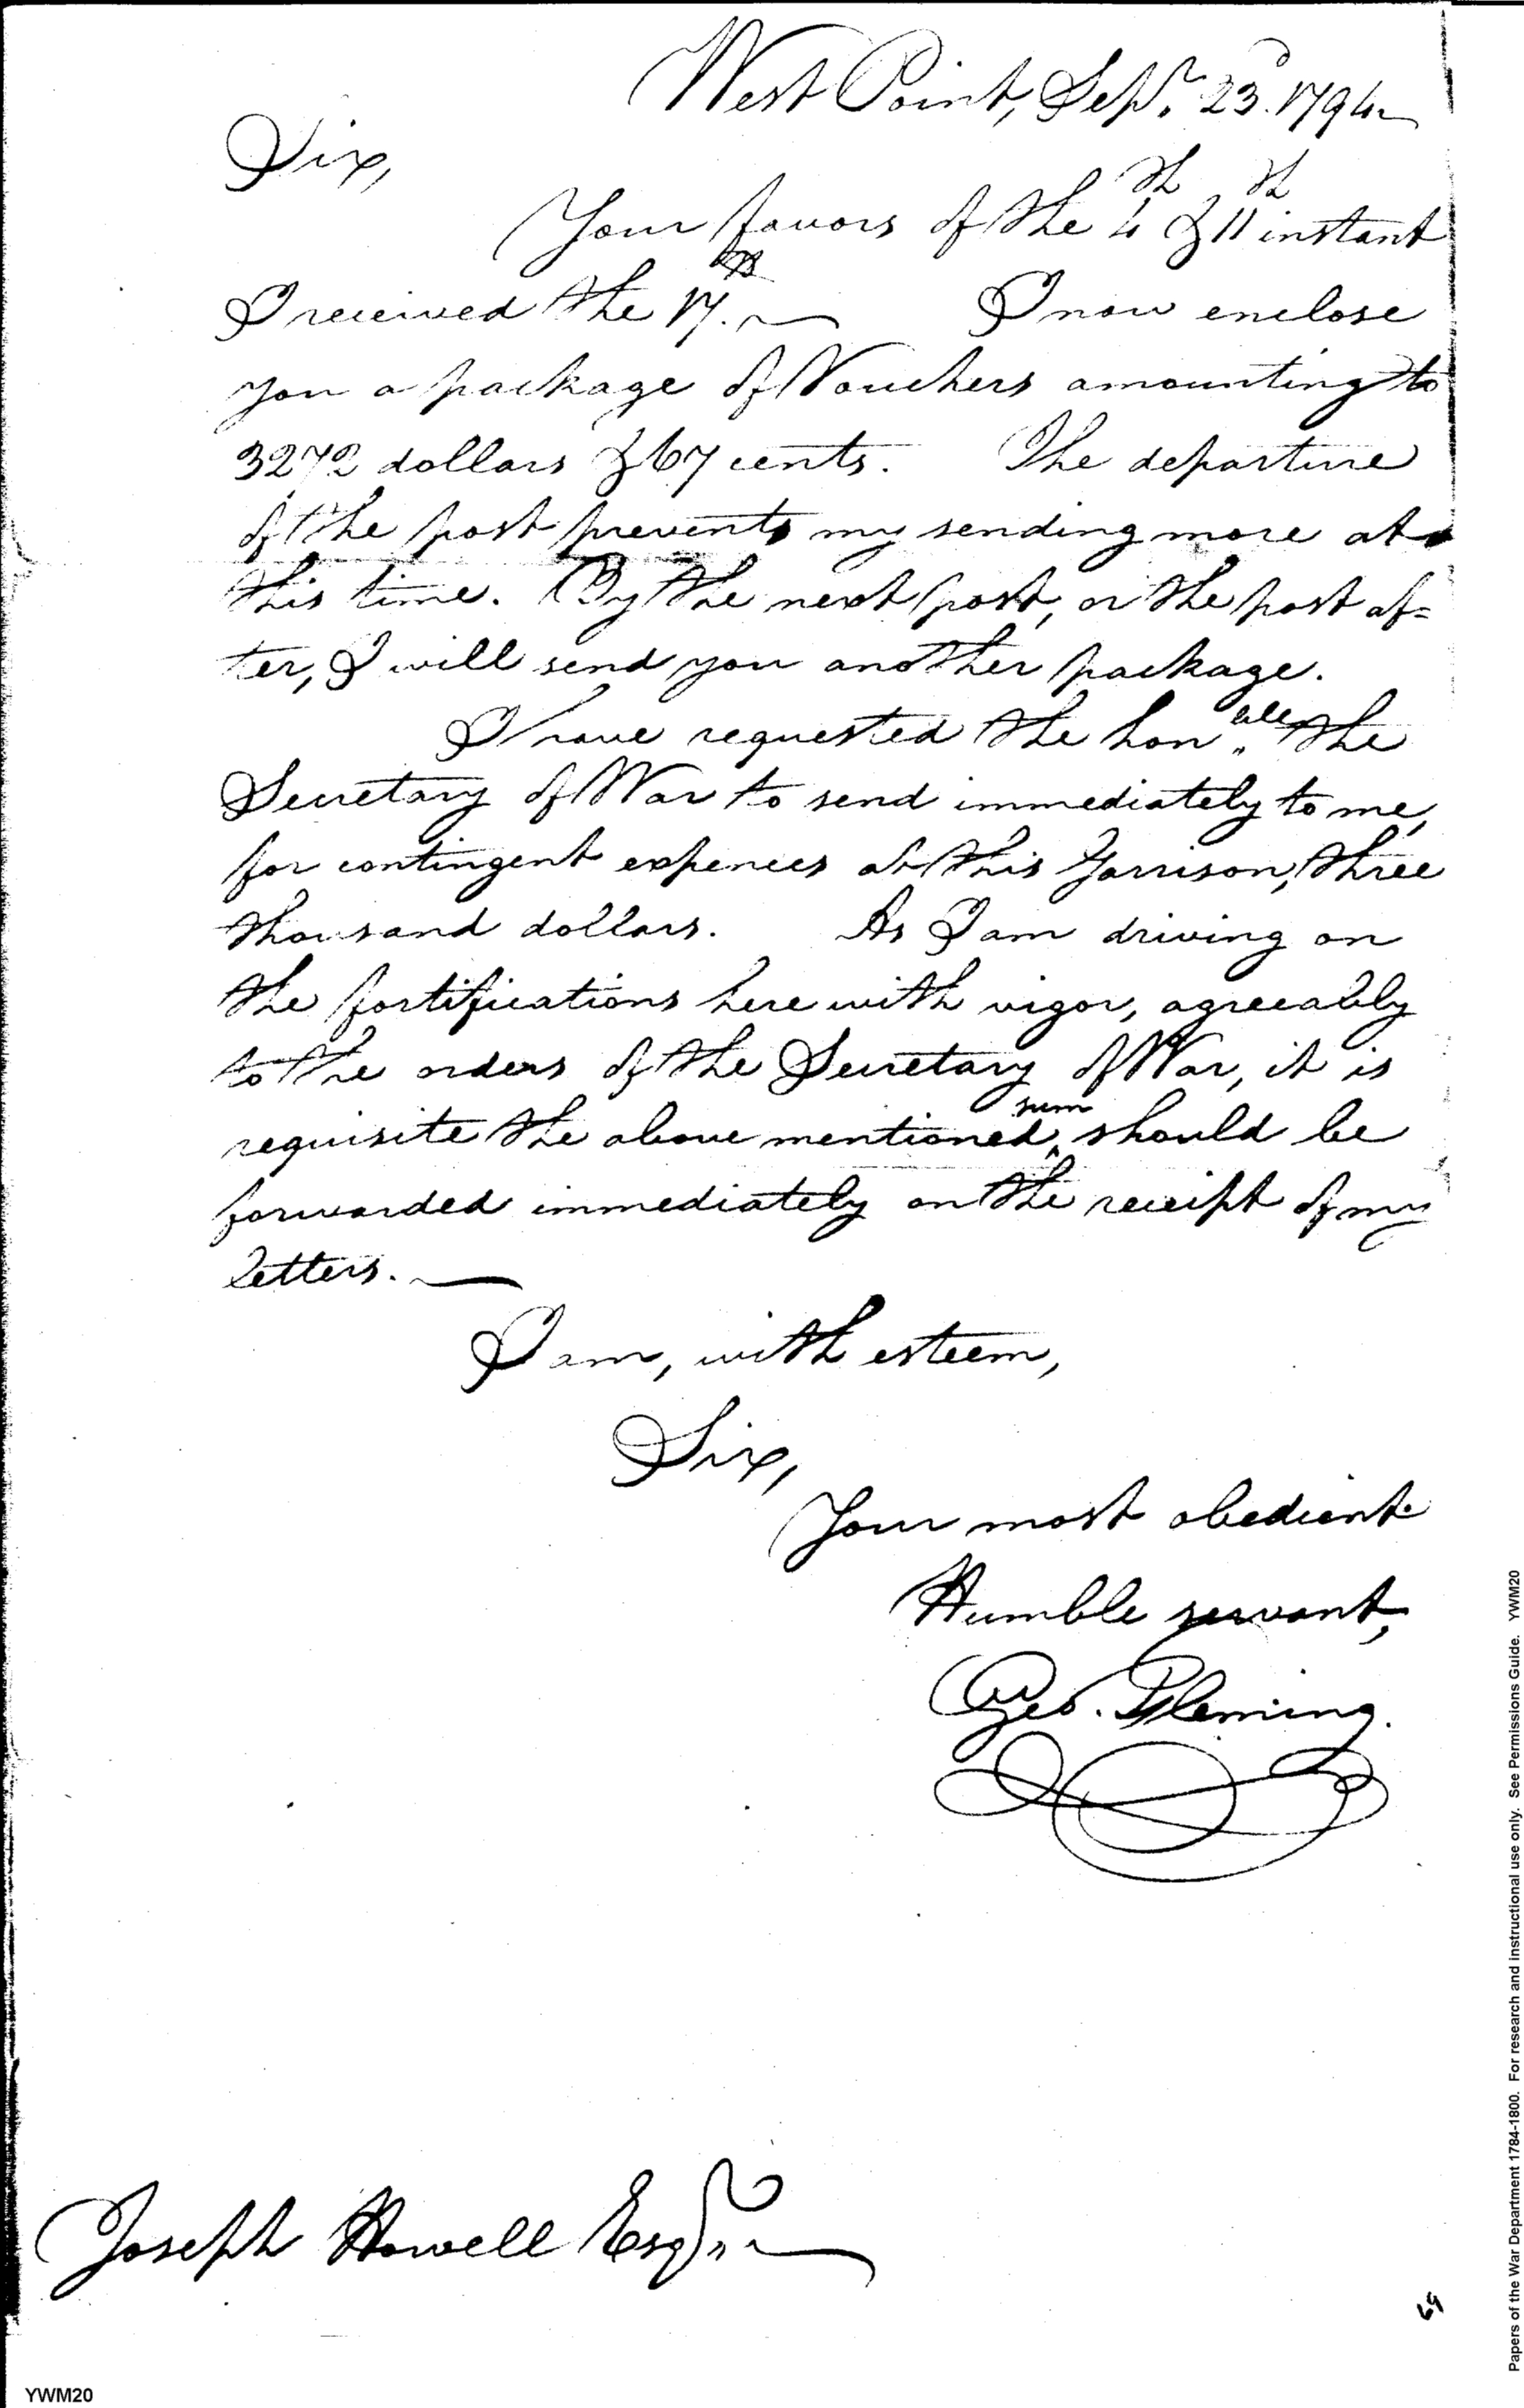 West Point, Sepr. 23d. 1794
Sir,
Your favors of the 4th & 11th instant
I received the 17th. I now enclose
you a package of Vouchers amounting to
3272 dollars & 67 cents. The departure
of the post prevents my sending more at
this time. By the next post, or the post af=
ter, I will send you another package.
I have requested the honble the
Secretary of War to send immediately to me,
for contingent expences at this Garrison, three
thousand dollars. As I am driving on
the fortifications here with vigor, agreeably
to the orders of the Secretary of War, it is
requisite the above mentioned ^sum should be
forwarded immediately on the receipt of my
letters.
I am, with esteem,
Sir,
Your most obedient
Humble servant,
Geo. Fleming.
Joseph Howell Esqr
69
YWM20
Papers of the War Department 1784-1800. For research and instructional use only. See Permissions Guide. YWM20